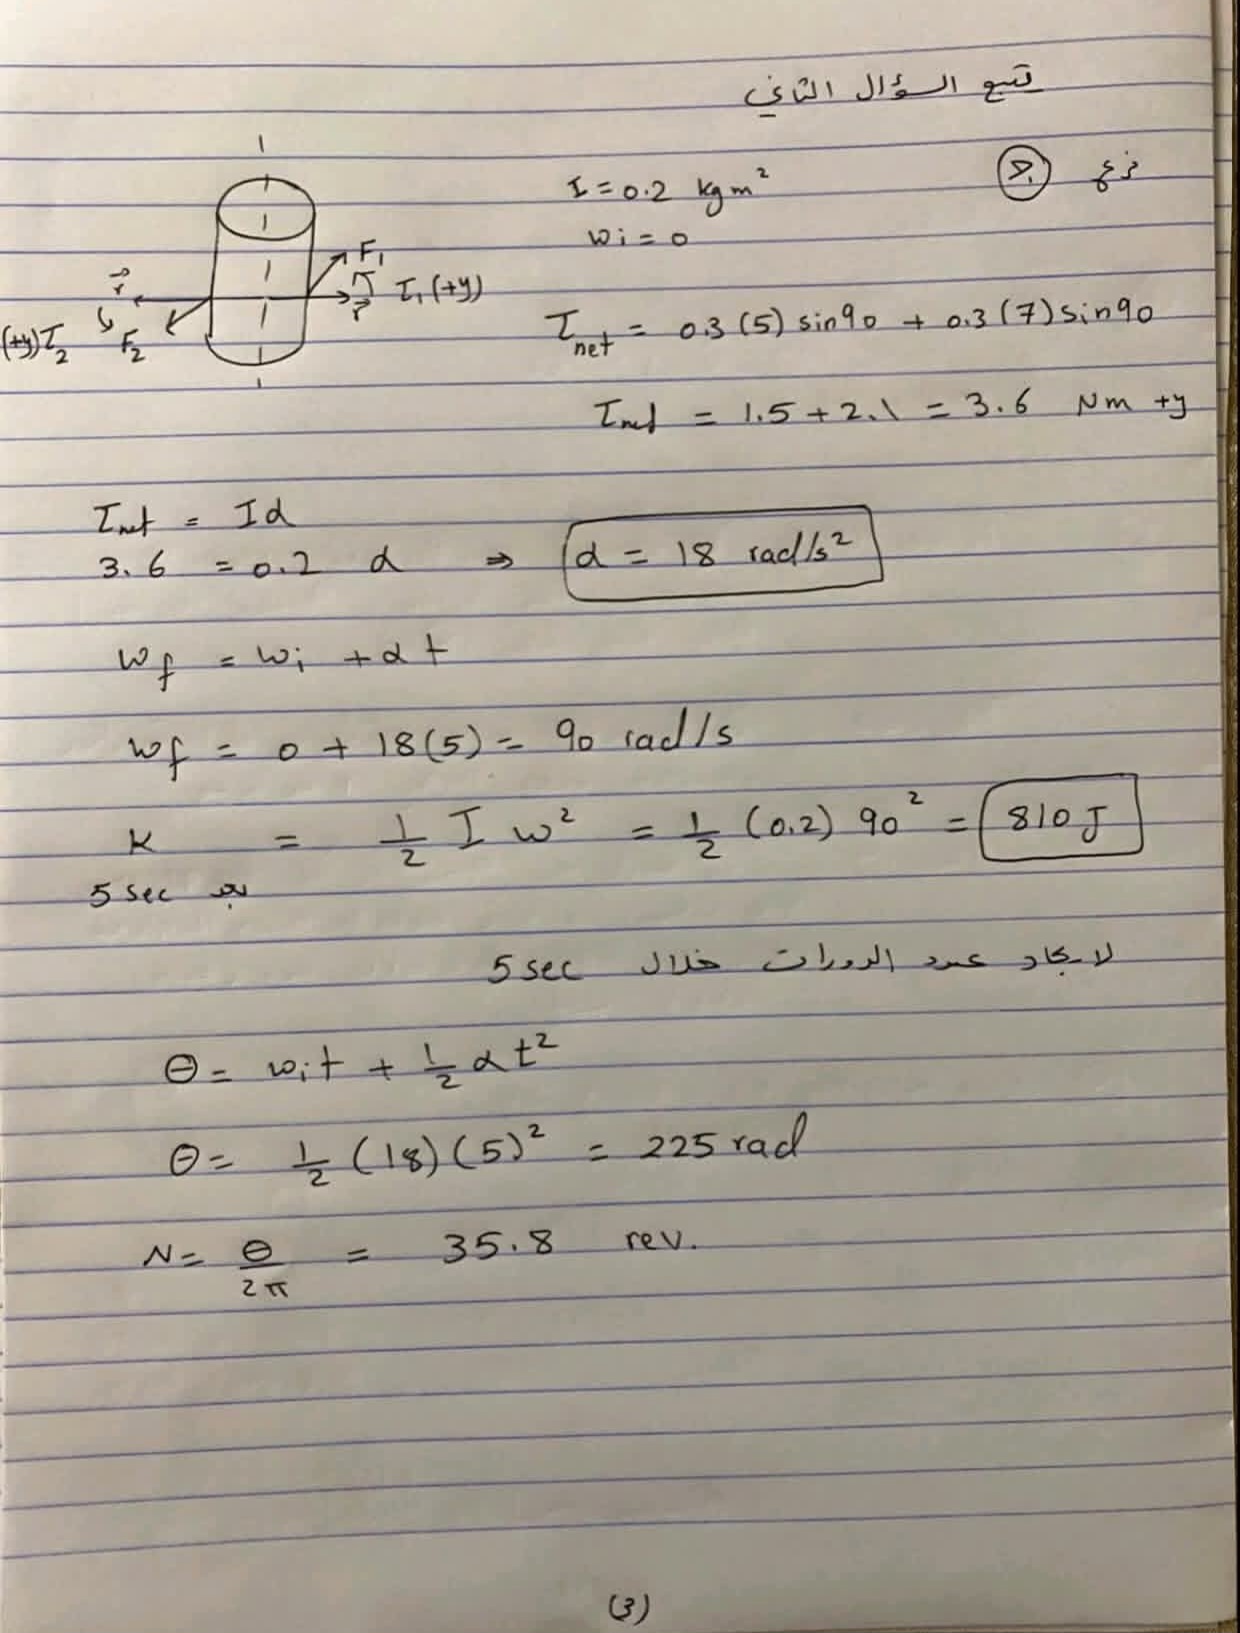 تتبع السؤال الثاني
فرع
I = 0.2 kgm²
wi = 0
F₁
r⃗ τ₁ (+y)
r⃗
(+y) τ₂ F₂
τnet = 0.3 (5) sin90 + 0.3 (7) sin90
τnet = 1.5 + 2.1 = 3.6 Nm +y
τnet = Iα
3.6 = 0.2 α ⇒ α = 18 rad/s²
wf = wi + αt
wf = 0 + 18(5) = 90 rad/s
K = 1/2 I w² = 1/2 (0.2) 90² = 810 J
بعد 5 sec
لايجاد عدد الدورات خلال 5 sec
θ = wit + 1/2 αt²
θ = 1/2 (18) (5)² = 225 rad
N = θ/2π = 35.8 rev.
(3)